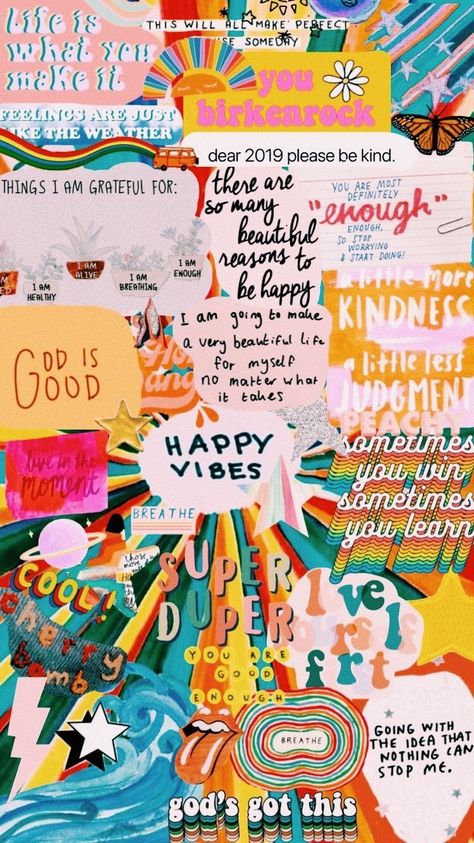 life is
what you
make it
THIS WILL ALL MAKE PERFECT
SOMEDAY
you
birkenrock
FEELINGS ARE JUST
LIKE THE WEATHER
dear 2019 please be kind.
THINGS I AM GRATEFUL FOR:
I AM
HEALTHY
I AM
ALIVE
I AM
BREATHING
I AM
ENOUGH
there are
so many
beautiful
reasons to
be happy
YOU ARE MOST
DEFINITELY
"enough"
ENOUGH,
SO STOP
WORRYING
& START DOING!
a little more
KINDNESS
a little less
JUDGMENT
I am going to make
a very beautiful life
for myself
no matter what
it takes
GOD IS
GOOD
PEACHY
HAPPY
VIBES
sometimes
you win
sometimes
you learn
live in the
moment
BREATHE
COOL!
cherry
bomb
SUPER
DUPER
YOU ARE
GOOD
ENOUGH
love
frt
BREATHE
GOING WITH
THE IDEA THAT
NOTHING CAN
STOP ME.
god's got this